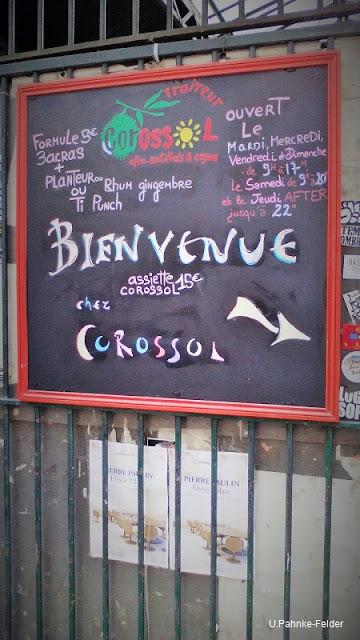 traiteur
COROSSOL
afro-antillais & cajun
FORMULE 5€
3 ACRAS
+
PLANTEUR OU
OU RHUM GINGEMBRE
TI PUNCH
OUVERT
LE
MARDI, MERCREDI,
VENDREDI & DIMANCHE
DE 9H À 17H
LE SAMEDI DE 9H À 20H
ET LE JEUDI AFTER
JUSQU'À 22H
BIENVENUE
ASSIETTE
COROSSOL 15€
CHEZ
COROSSOL
PIERRE PAULIN
PIERRE PAULIN
U.Pahnke-Felder